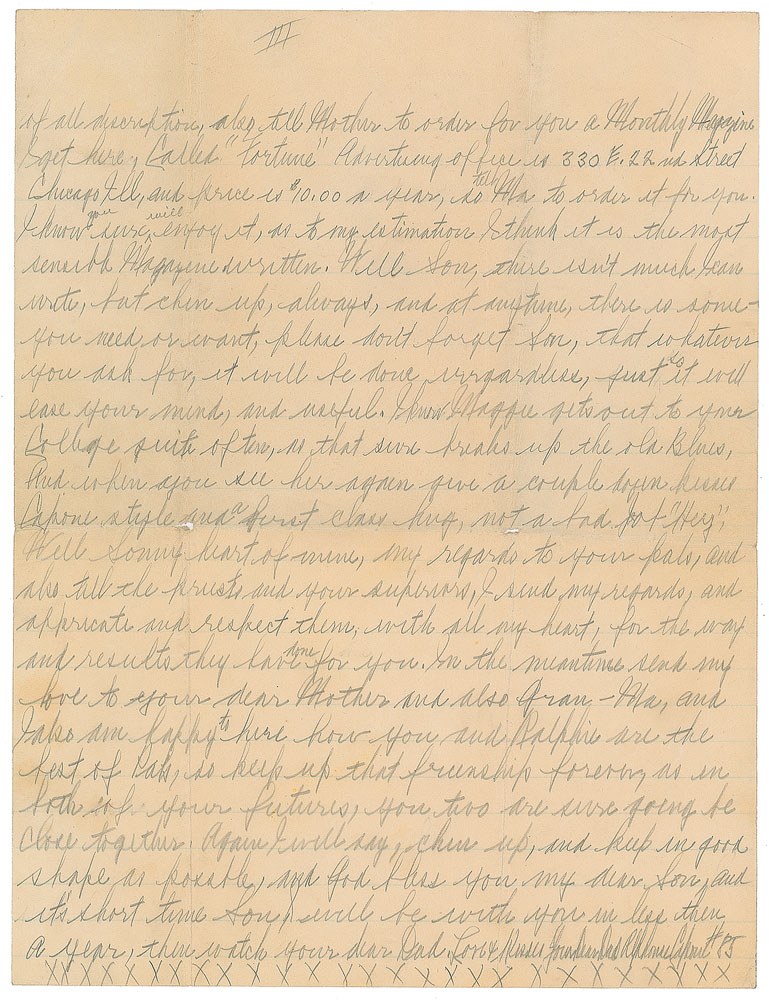 III
of all discription, also tell Mother to order for you a Monthly Magazine
I get here, Called "Fortune" Advertising office is 330 E. 22nd Street
Chicago Ill, and price is $10.00 a year, so tell Ma to order it for you.
I know you sure will enjoy it, as to my estimation I think it is the most
sensible Magazene written. Well Son, there isn't much I can
write, but chin up, always, and at anytime, there is some-
you need or want, please don't forget Son, that whatever
you ask for, it will be done, irregardless, just so it will
ease your mind, and useful. I know Maggie gets out to your
College quite often, as that sure breaks up the old Blues,
And when you see her again give a couple dozen kisses
Capone style and a first class hug, not a bad job "Hey",
Well Sonny heart of mine, my regards to your pals, and
also tell the priests, and your superiors, I send my regards, and
appricate and respect them, with all my heart, for the way
and results they have done for you. In the meantime send my
love to your dear Mother and also Gran-Ma, and
I also am happy to here how you and Ralphie are the
best of Pals, so keep up that frienship forever, as in
both of your futures, you two are sure going be
close together. Again I will say, chin up, and keep in good
shape as possble, and God bless you, my dear Son, and
it's short time Son, I will be with you in less then
a year, then watch your dear Dad. Love & Kisses Your Dear Dad Alphonse Capone #85
X X X X X X X X X X X X X X X X X X X X X X X X X X X X X